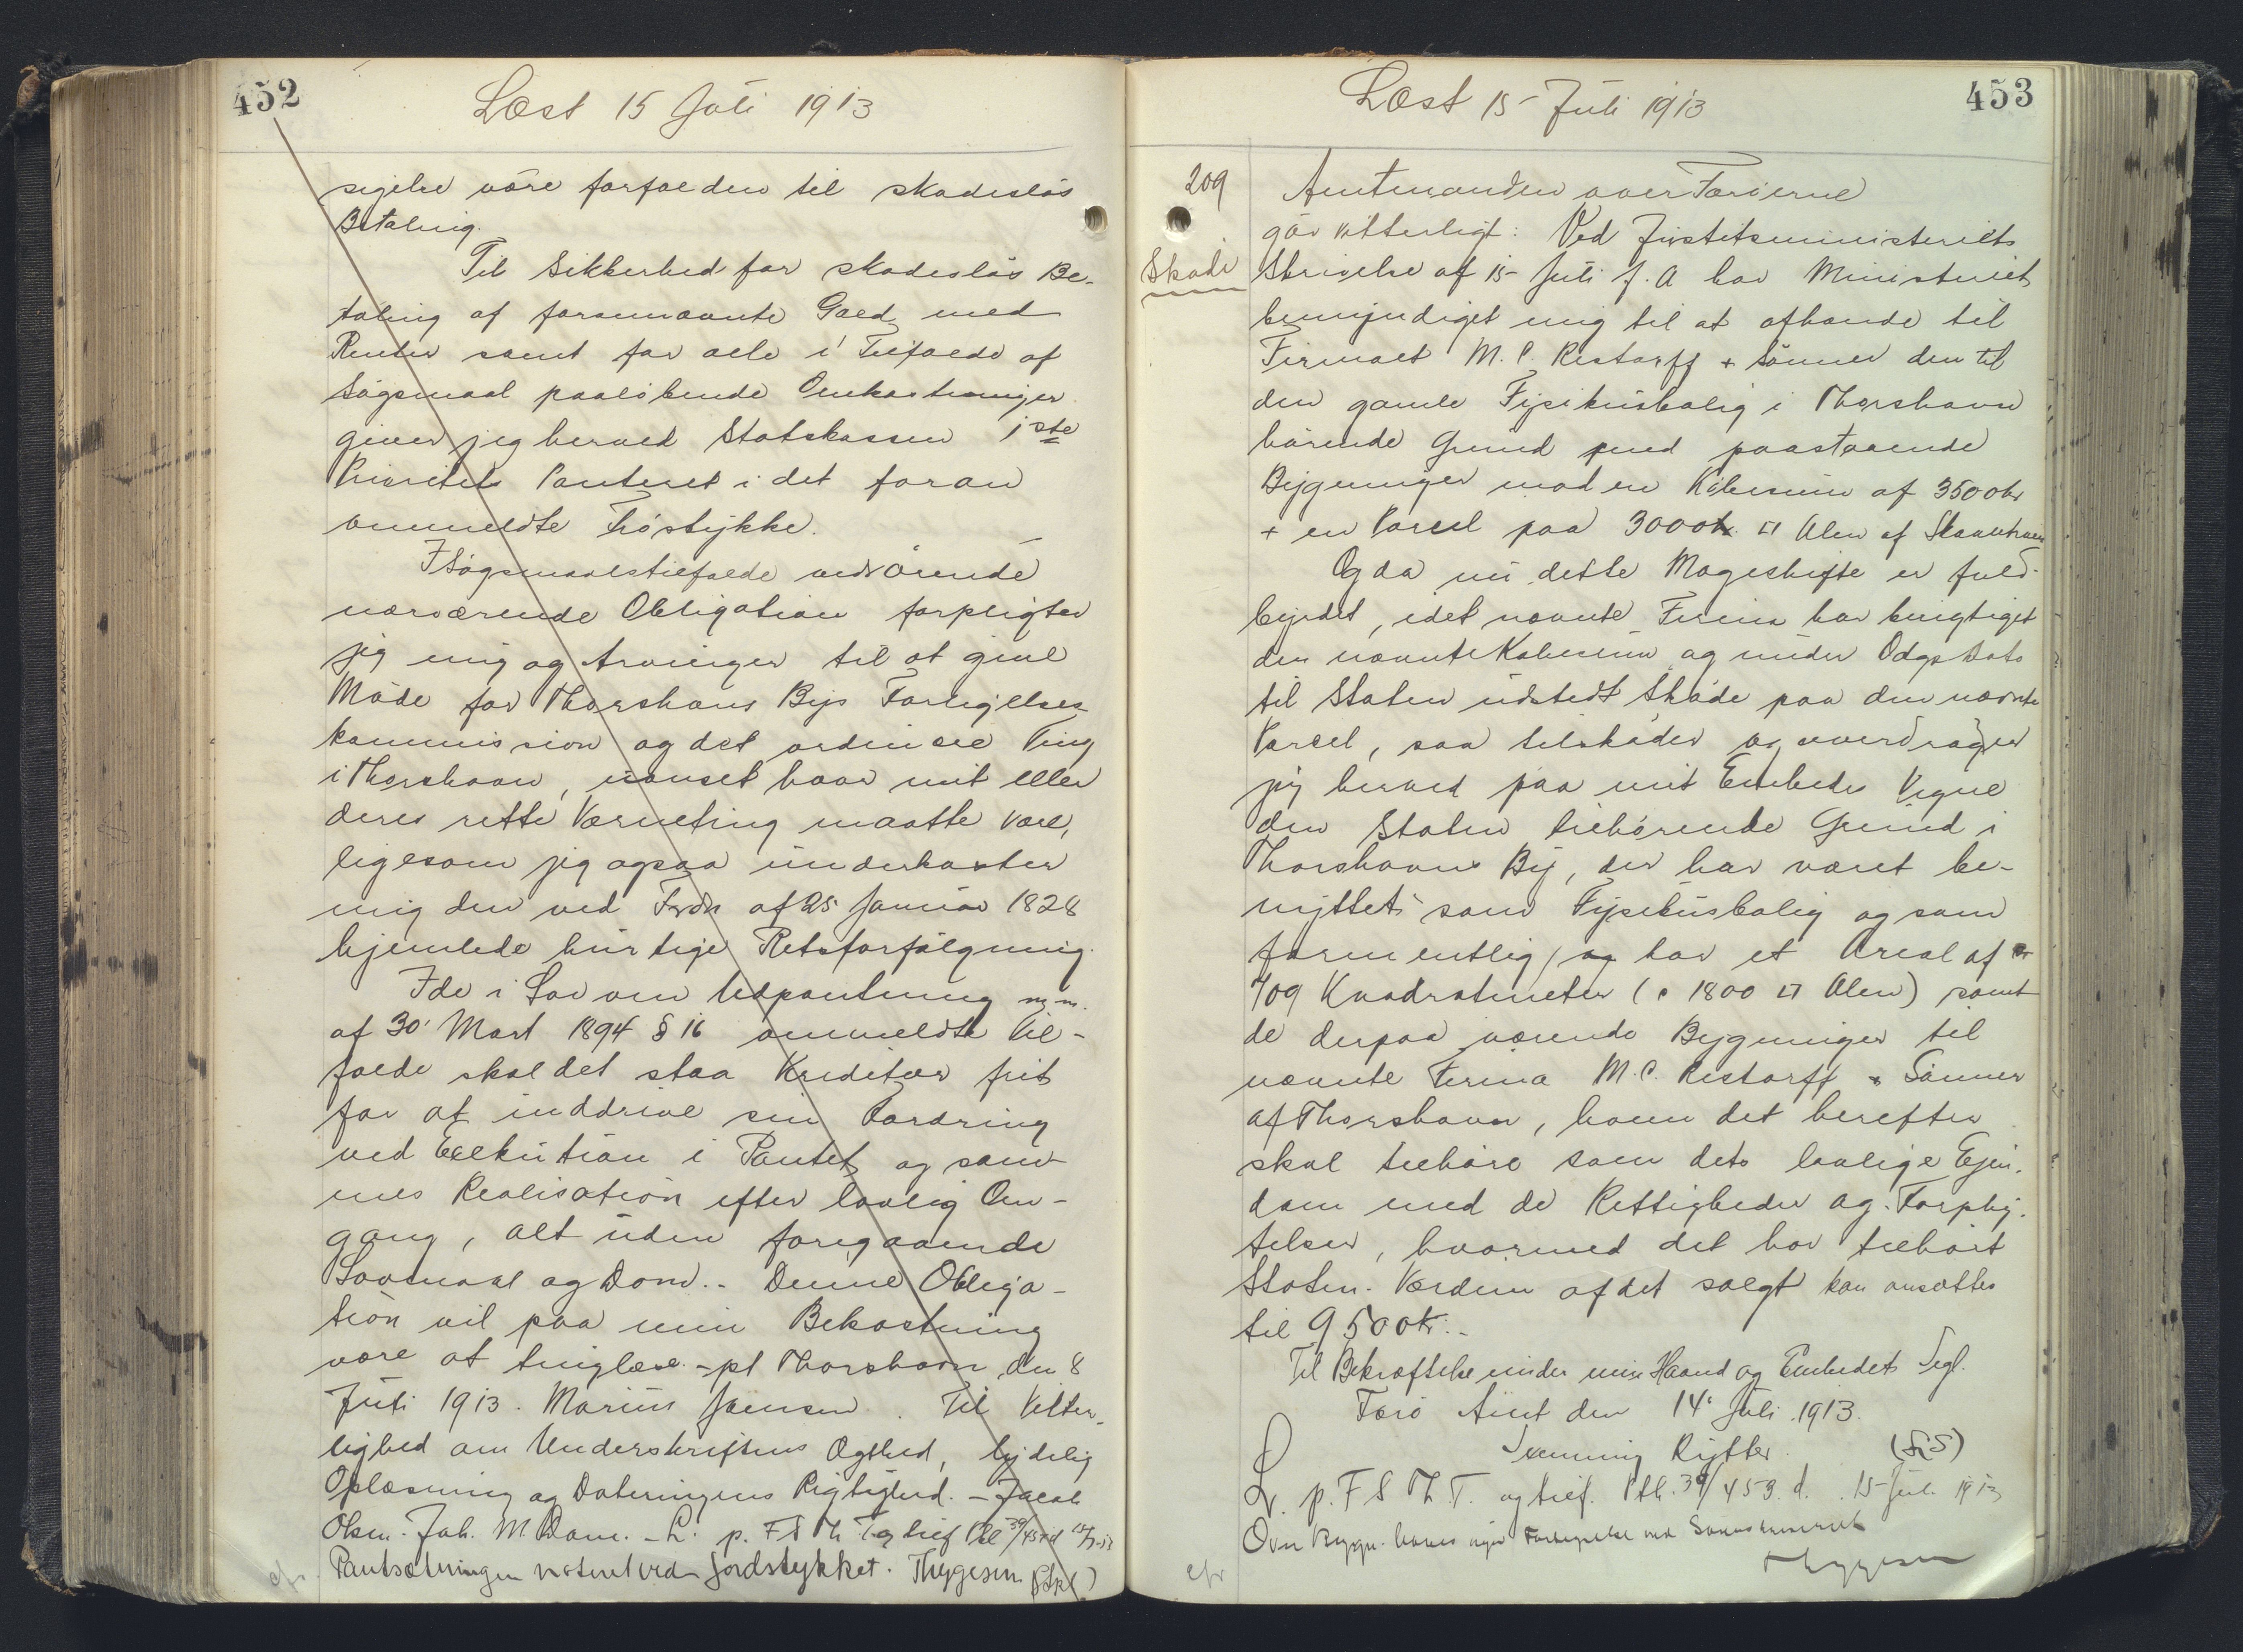 452
Læst 15 Juli 1913
sigelse være forfalden til skadesløs
Betaling.
Til Sikkerhed for skadesløs Be-
taling af forannævnte Gæld med
Renter samt for alle i Tilfælde af
Søgsmaal paaløbende Omkostninger
giver jeg herved Statskassen 1ste
Prioritets Panteret i det foran
ommeldte Tröstykke.
I Søgsmaalstilfælde vedrörende
nærværende Obligation forpligter
jeg mig og Arvinger til at give
Möde for Thorshavns Byes Forligelses
kommission og det ordinære Ting
i Thorshavn, uanset hvor mit eller
deres rette Værneting maatte være,
ligesom jeg ogsaa underkaster
mig den ved Frdn af 25 Januar 1828
hjemlede hurtige Retsforfölgning.
I de i Lov om Udpantning m.m.
af 30' Mart 1894 § 16 ommeldte Til-
fælde skal det staa Kreditor frit
for at inddrive sin Fordring
ved Exekution i Pantet og sam-
mes Realisation efter lovlig Om-
gang, alt uden foregaaende
Lovmaal og Dom.- Denne Obliga-
tion vil paa min Bekostning
være at tinglæse.- pt Thorshavn, den 8
Juli 1913. Marius Joensen. Til Vitter-
lighed om Underskriftens Ægthed, tydelig
Oplæsning og Dateringens Rigtighed. - Jacob
Olsen. Joh. M. Dam. - L. p. F S Th T og tilf Ptb 39/
Pantsætningen noteret ved Jordstykket. Thygesen
cfr.
453
Læst 15- Juli 1913
209 Amtmanden over Færöerne
gör vitterligt: Ved Justitsministeriets
Sköde Skrivelse af 15- Juli f. A har Ministeriet
bemyndiget mig til at afhænde til
Firmaet M. C. Restorff + Sönner den til
den gamle Fysikusbolig i Thorshavn
hörende Grund med paastaaende
Bygninger mod en Købesum af 3500 kr
+ en Parcel paa 3000 □ Alen af
Og da nu dette Mageskifte er fuld-
byrdet, idet nævnte Firma har berigtiget
den nævnte Købesum og under Dags Dato
til Staten udstedt Sköde paa den nævnte
Parcel, saa tilsköder og overdrager
jeg herved paa mit Embeds Vegne
den Staten tilhörende Grund i
Thorshavns By, der har været be-
nyttet som Fysikusbolig og som
formentlig har et Areal af
709 Kvadratmeter (c 1800 □ Alen) samt
de derpaa værende Bygninger til
nævnte Firma M. C. Restorff & Sönner
af Thorshavn, hvem det herefter
skal tilhöre som dets lovlige Ejen-
dom med de Rettigheder og Forplig-
telser, hvormed det har tilhört
Staten. Værdien af det solgt kan ansættes
til 9500 kr.-
Til Bekræftelse under min Haand og Embedets Segl.
Færö Amt den 14' Juli 1913.
Svenning Rytter. (LS)
L. p. F S Th. T. og tilf. Ptb. 39/453 d. 15 Juli 1913
Over Bygn. haves ingen
Thygesen
cfr